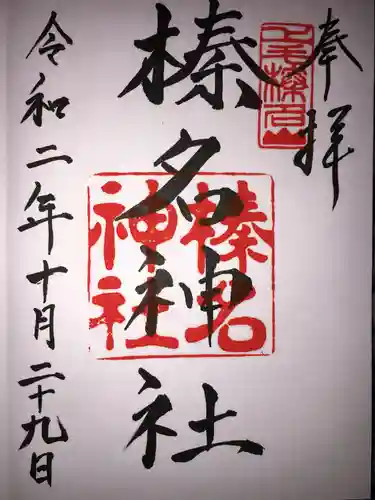 奉拝
上毛榛名山
榛名神社
榛名神社
令和二年十月二十九日